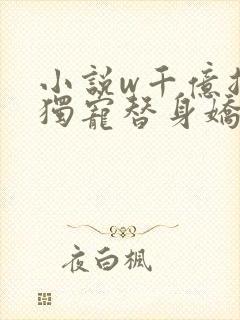 小說w千億
獨寵替身嬌
夜白楓